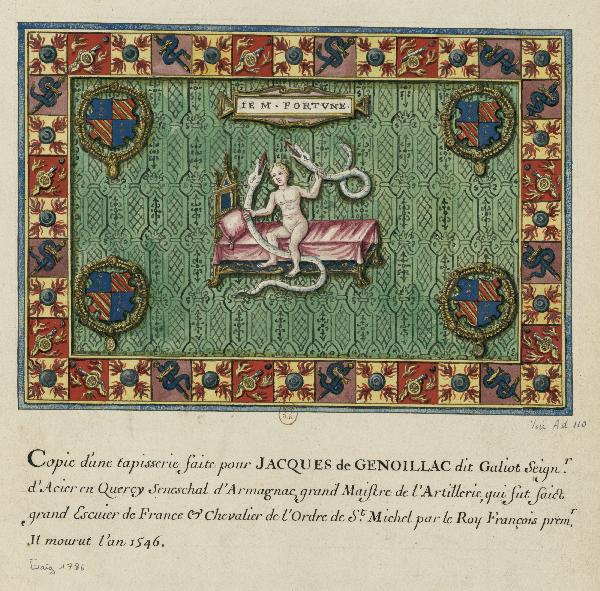 IE M · FORTVNE ·
Copie d'une tapisserie faite pour JACQUES de GENOILLAC dit Galiot Seign.r
d'Acier en Quercy Seneschal d'Armagnac, grand Maistre de l'Artillerie, qui fut faict
grand Escuier de France & Chevalier de l'Ordre de S.t Michel par le Roy François prem.r
Il mourut l'an 1546.
Ad 110
1786